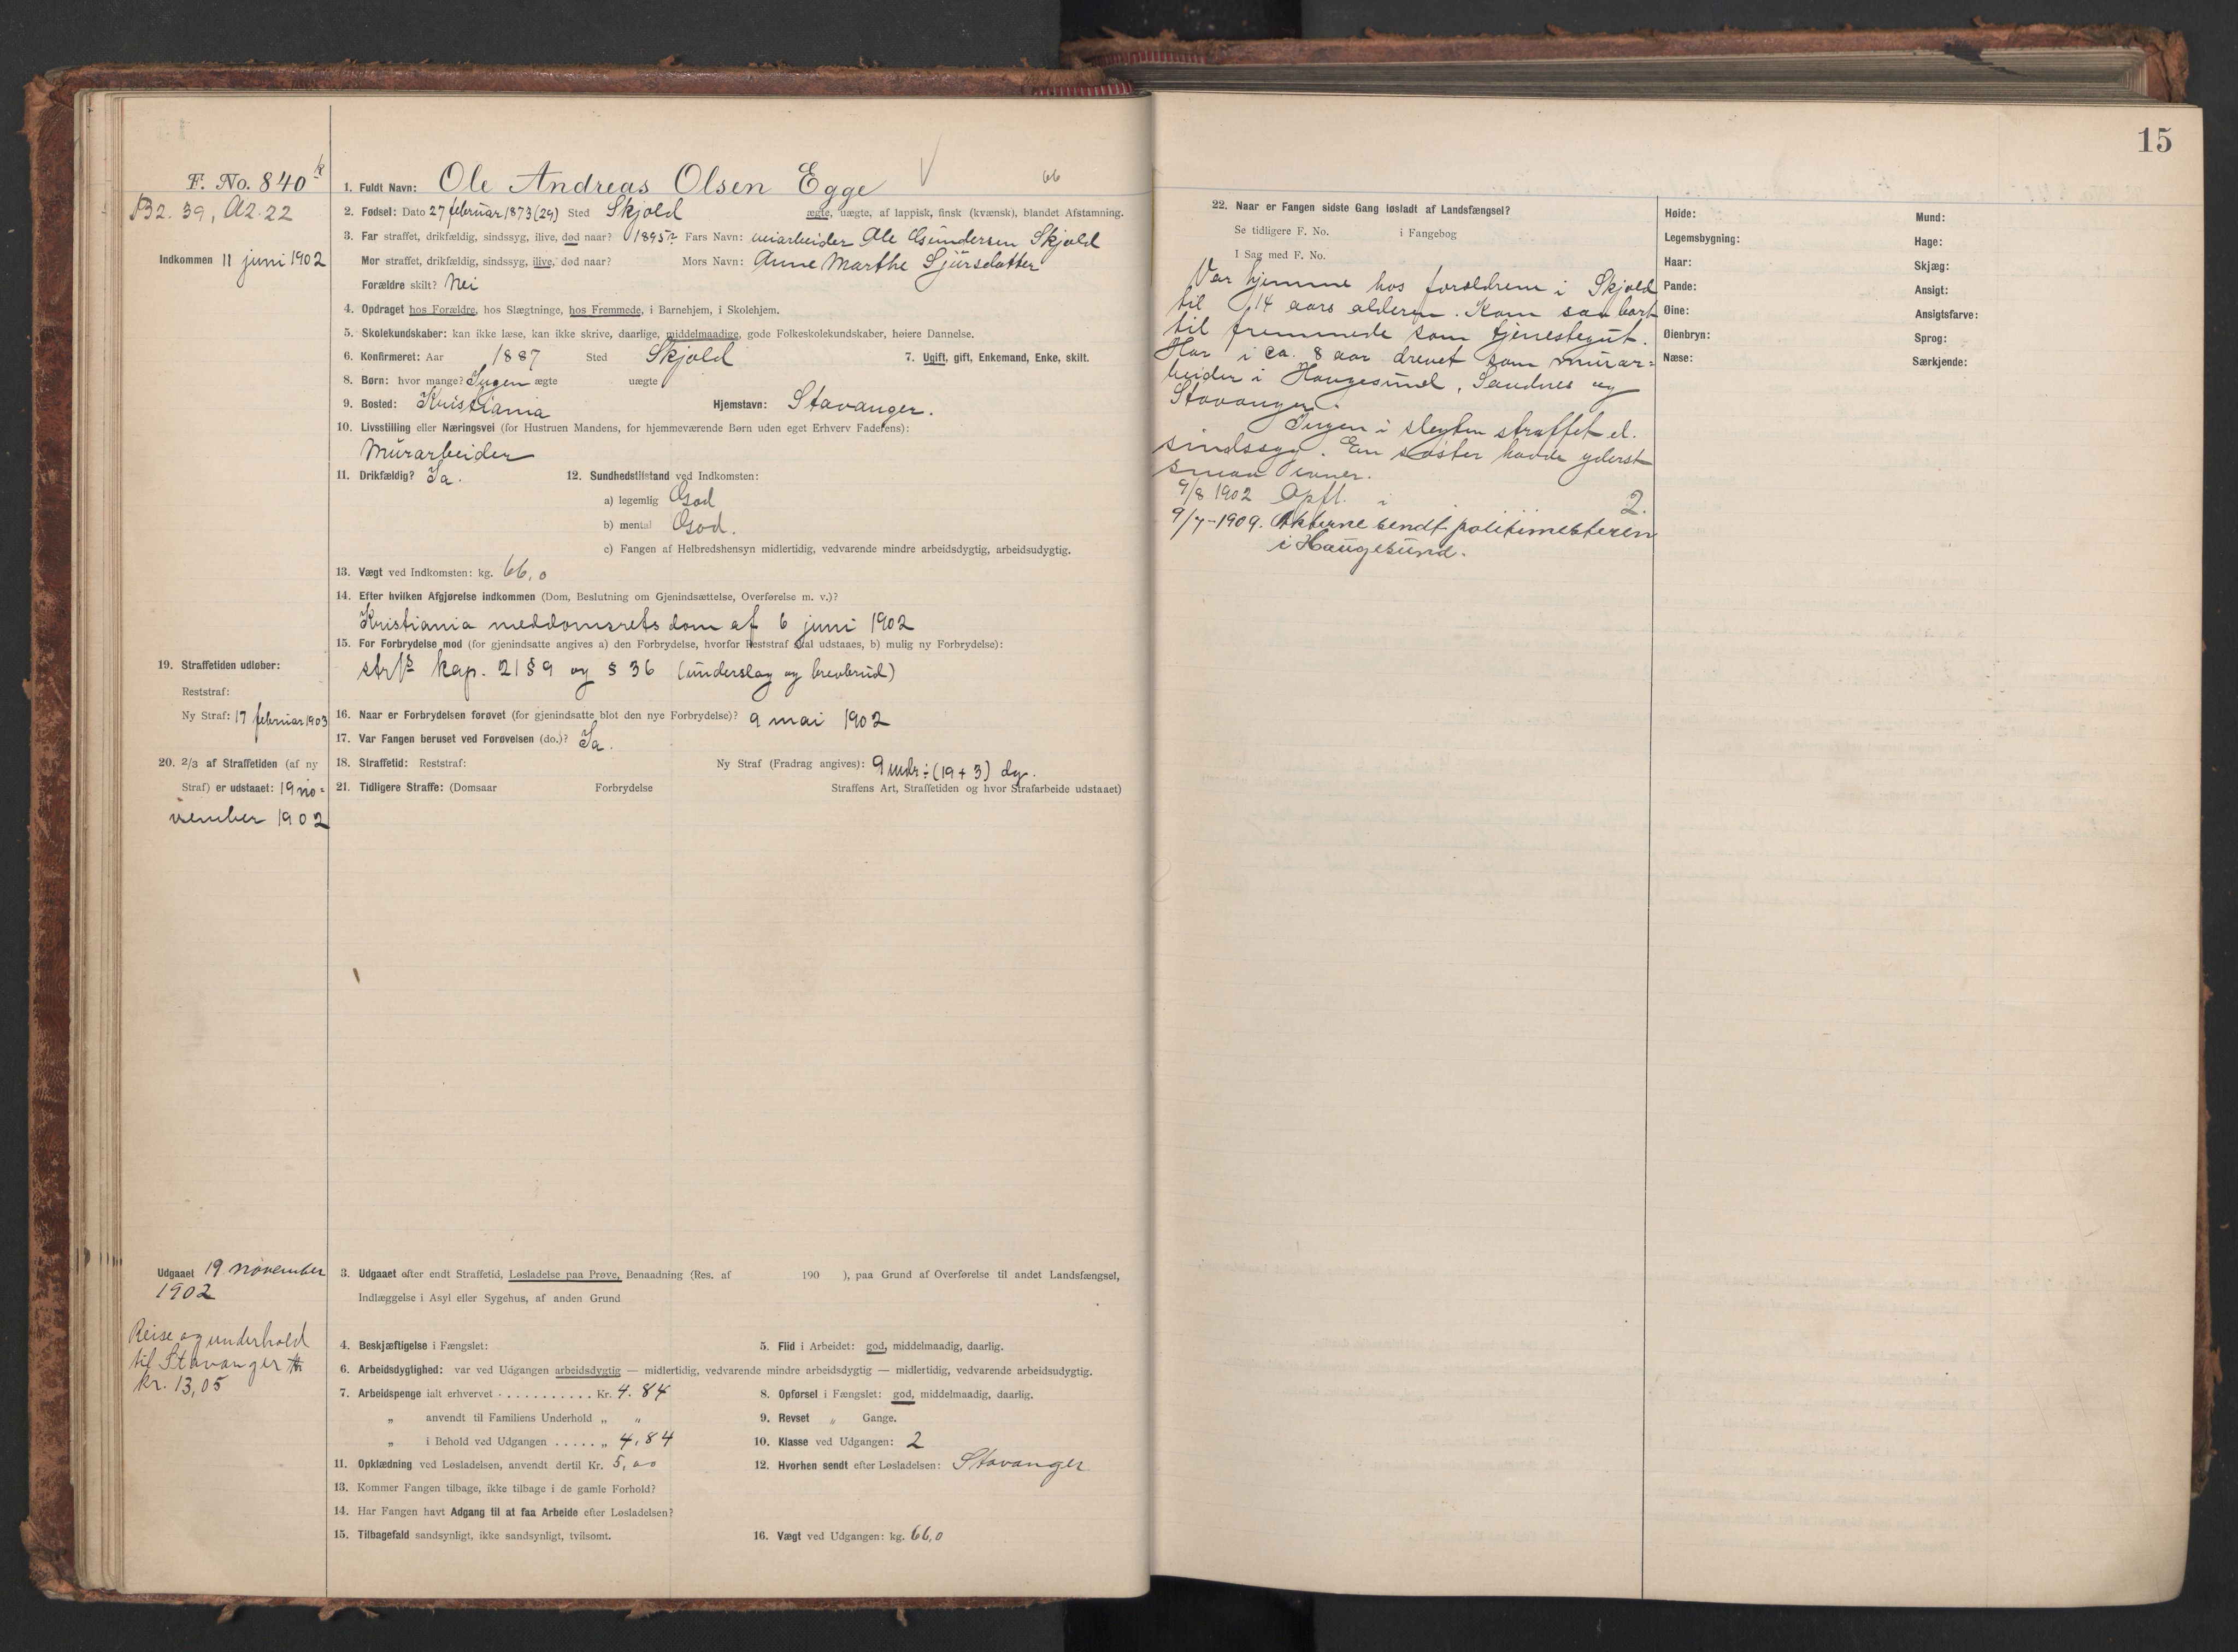 15
F. No. 840
B2. 39, A2. 22
Indkommen 11 juni 1902
66
1. Fuldt Navn: Ole Andreas Olsen Egge
2. Fødsel: Dato 27 februar 1873 (29) Sted Skjold ægte, uægte, af lappisk, finsk (kvænsk), blandet Afstamning.
3. Far straffet, drikfældig, sindssyg, ilive, død naar? 1895? Fars Navn: veiarbeider Ole Gundersen Skjold
Mor straffet, drikfældig, sindssyg, ilive, død naar? Mors Navn: Anne Marthe Sjursdatter
Forældre skilt? Nei
4. Opdraget hos Forældre, hos Slægtninge, hos Fremmede, i Barnehjem, i Skolehjem.
5. Skolekundskaber: kan ikke læse, kan ikke skrive, daarlige, middelmaadige, gode Folkeskolekundskaber, høiere Dannelse.
6. Konfirmeret: Aar 1887 Sted Skjold 7. Ugift, gift, Enkemand, Enke, skilt.
8. Børn: hvor mange? Ingen ægte uægte
9. Bosted: Kristiania Hjemstavn: Stavanger.
10. Livsstilling eller Næringsvei (for Hustruen Mandens, for hjemmeværende Børn uden eget Erhverv Faderens):
Murarbeider
11. Drikfældig? Ja. 12. Sundhedstilstand ved Indkomsten:
a) legemlig God
b) mental God.
c) Fangen af Helbredshensyn midlertidig, vedvarende mindre arbeidsdygtig, arbeidsudygtig.
13. Vægt ved Indkomsten: kg. 66,0
14. Efter hvilken Afgjørelse indkommen (Dom, Beslutning om Gjenindsættelse, Overførelse m. v.)?
Kristiania meddomsrets dom af 6 juni 1902
15. For Forbrydelse mod (for gjenindsatte angives a) den Forbrydelse, hvorfor Reststraf skal udstaaes, b) mulig ny Forbrydelse):
kap. 21 § 9 og § 36 (underslag og brevbrud)
19. Straffetiden udløber:
Reststraf:
Ny Straf: 17 februar 1903
16. Naar er Forbrydelsen forøvet (for gjenindsatte blot den nye Forbrydelse)? 9 mai 1902
17. Var Fangen beruset ved Forøvelsen (do.)? Ja.
20. 2/3 af Straffetiden (af ny
Straf) er udstaaet: 19 no-
vember 1902
18. Straffetid: Reststraf: Ny Straf (Fradrag angives): 9 mdr ÷ (19 + 3) dg.
21. Tidligere Straffe: (Domsaar Forbrydelse Straffens Art, Straffetiden og hvor Strafarbeide udstaaet)
Udgaaet 19 november
1902
Reise og underhold
til Stavanger
kr. 13,05
3. Udgaaet efter endt Straffetid, Løsladelse paa Prøve, Benaadning (Res. af 190 ), paa Grund af Overførelse til andet Landsfængsel,
Indlæggelse i Asyl eller Sygehus, af anden Grund
4. Beskjæftigelse i Fængslet: 5. Flid i Arbeidet: god, middelmaadig, daarlig.
6. Arbeidsdyglighed: var ved Udgangen arbeidsdygtig — midlertidig, vedvarende mindre arbeidsdygtig — midlertidig, vedvarende arbeidsudygtig.
7. Arbeidspenge ialt erhvervet . . . . . . . . . . . Kr. 4. 84 8. Opførsel i Fængslet: god, middelmaadig, daarlig.
„ anvendt til Familiens Underhold „ „ 9. Revset „ Gange.
„ i Behold ved Udgangen . . . . . „ 4,84 10. Klasse ved Udgangen: 2
11. Opklædning ved Løsladelsen, anvendt dertil Kr. 5,00 12. Hvorhen sendt efter Løsladelsen: Stavanger
13. Kommer Fangen tilbage, ikke tilbage i de gamle Forhold?
14. Har Fangen havt Adgang til at faa Arbeide efter Løsladelsen?
15. Tilbagefald sandsynligt, ikke sandsynligt, tvilsomt. 16. Vægt ved Udgangen: kg. 66,0
22. Naar er Fangen sidste Gang løsladt af Landsfængsel?
Se tidligere F. No. i Fangebog
I Sag med F. No.
Var hjemme hos forældrene i Skjold
til 14 aars alderen. Kom saa bort
til fremmede som tjenestegut.
Har i ca. 8 aar drevet som murar-
beider i Haugesund, Sandnes og
Stavanger.
Ingen i slegten straffet el.
sindssyg. En søster havde yderst
smaa evner.
9/8 1902 Opfl. i 2.
9/7-1909. Akterne sendt politimesteren
i Haugesund.
Høide:
Legemsbygning:
Haar:
Pande:
Øine:
Øienbryn:
Næse:
Mund:
Hage:
Skjæg:
Ansigt:
Ansigtsfarve:
Sprog:
Særkjende: